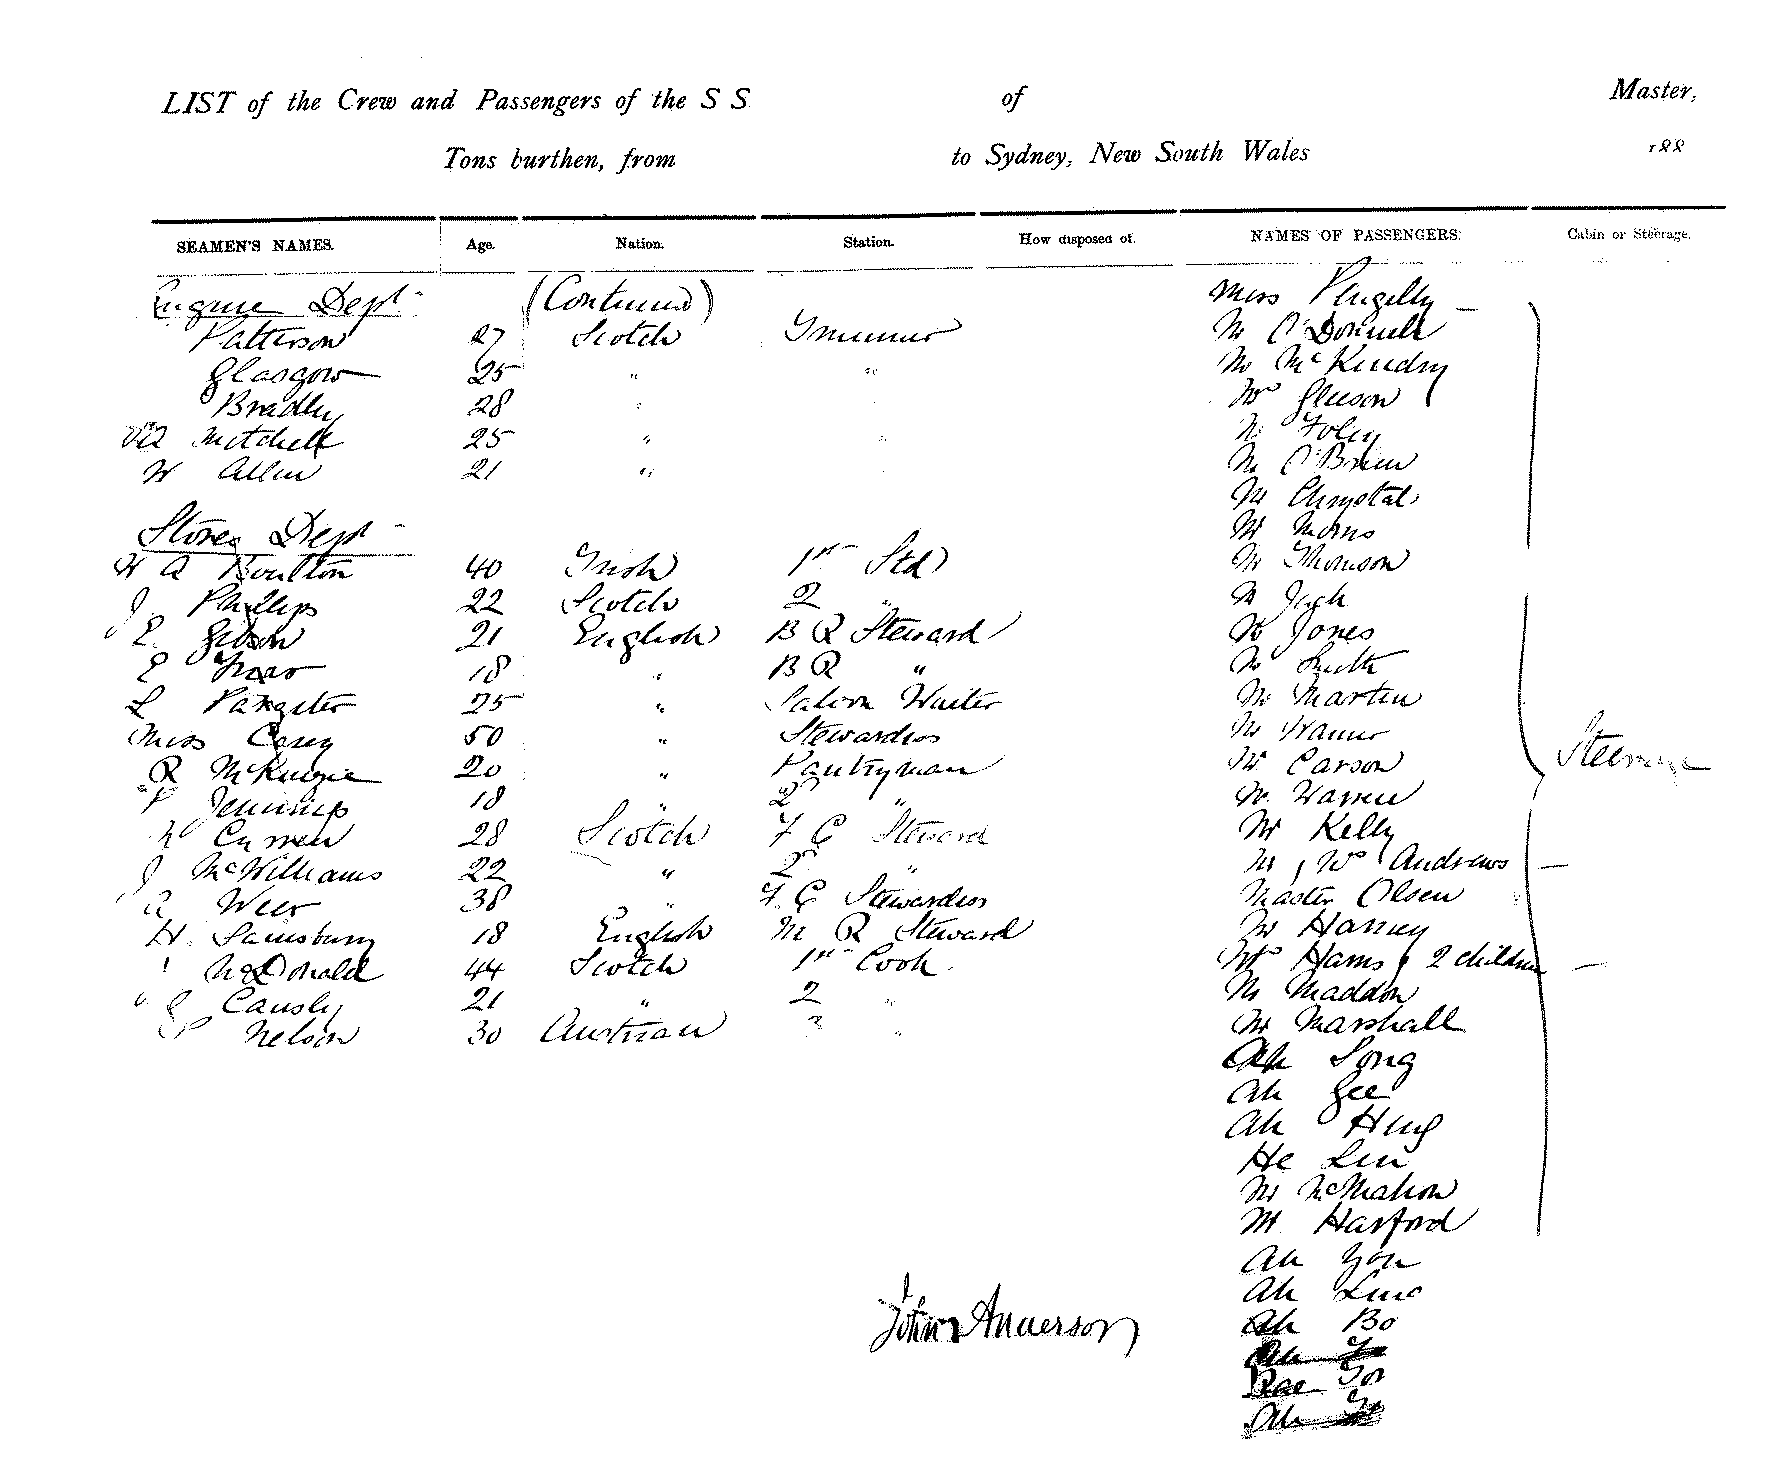 LIST of the Crew and Passengers of the S S of Master,
Tons burthen, from to Sydney, New South Wales 188
SEAMEN'S NAMES. Age. Nation. Station. How disposed of. NAMES OF PASSENGERS. Cabin or Steerage.
Engine Dept (Continued) Miss Pengelly
Patterson 27 Scotch Trimmer Mr O'Donnell
Glasgow 25 " " Mr McKendry
Bradley 28 " Mrs Gleeson
Mitchell 25 " " Mr Foley
W Allen 21 " Mr O'Brien
Mr Chrystal
Stores Dept Mr Morris
W A Boulton 40 Irish 1st Std Mr Thomson
J Phillips 22 Scotch 2 " Mr Jack
E Gibson 21 English B R Steward Mr Jones
E 18 " B R " Mr Smith
L Pargiter 25 " Saloon Waiter Mr Martin
Miss Casey 50 " Stewardess Mr
R McKenzie 20 " Pantryman Mr Carson Steerage
P Jennings 18 " 2 " Mr Warren
28 Scotch F C Steward Mr Kelly
J McWilliams 22 " 2 " Mr , Mrs Andrews
A Weir 38 " F C Stewardess Master Olsen
H. Sainsbury 18 English M R Steward Mr Harvey
McDonald 44 Scotch 1st Cook. Mrs Harris , 2 children
Causly 21 " 2 " Mr Maddon
P Nelson 30 Austrian 3 " Mr Marshall
Ah Song
Ah Gee
Ah Hing
He Lin
Mr McMahon
Mr Harford
Ah You
Ah Ling
John Anderson Ah Bo
Ah
Ah